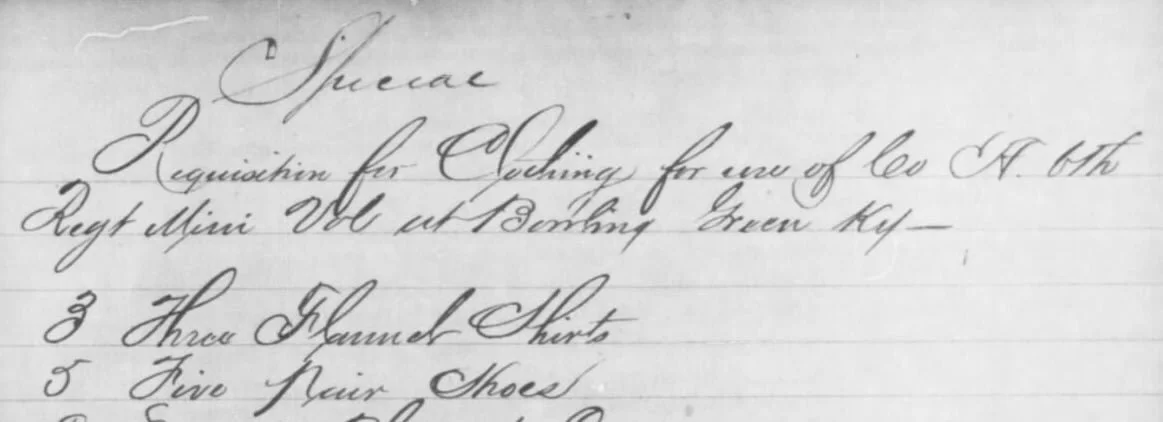 Special
Requisition for Clothing for use of Co H. 6th
Regt Minn Vol at Bowling Green Ky—
3 Three Flannel Shirts
5 Five Pair Shoes